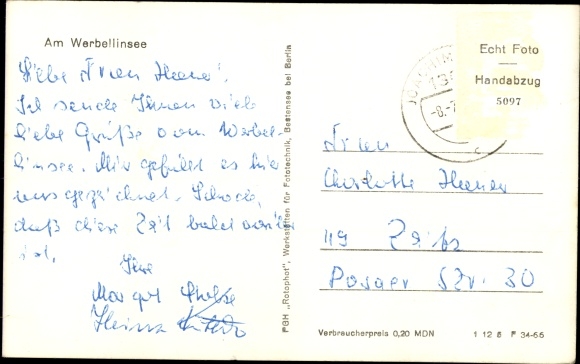 Am Werbellinsee
Liebe Frau Hener!
Ich sende Ihnen viele
liebe Grüße vom Werbel-
linsee. Mir gefällt es hier
ausgezeichnet. Schade,
daß diese Zeit bald vorüber
ist.
Ihre
Margot
Heinz
PGH „Rotophot", Werkstätten für Fototechnik, Bestensee bei Berlin
Echt Foto
Handabzug
5097
JOACHIM
-8.-7
c
Frau
Charlotte Hener
49 Zeitz
Posaer Str. 30
Verbraucherpreis 0,20 MDN
1 12 8 F 34-66